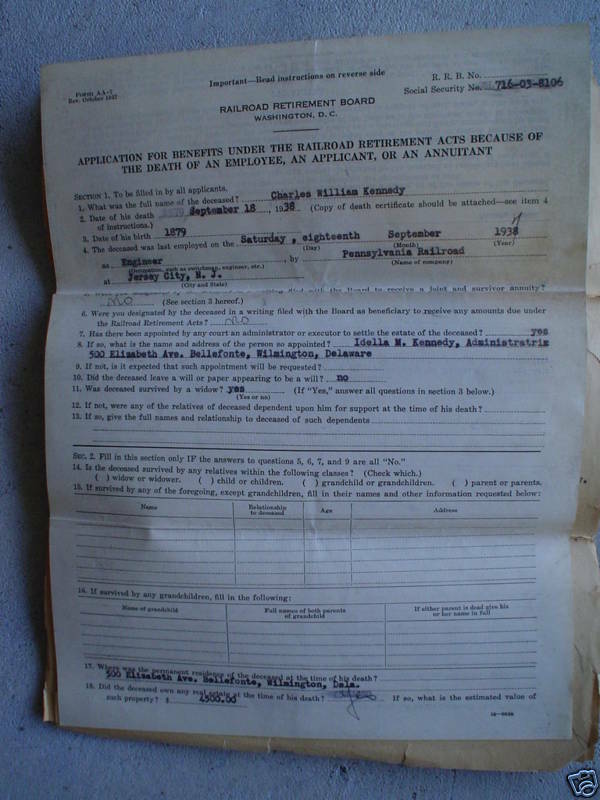 Form AA-7
Rev. October 1937
Important—Read instructions on reverse side
R. R. B. No.
Social Security No. 716-03-8106
RAILROAD RETIREMENT BOARD
WASHINGTON, D. C.
APPLICATION FOR BENEFITS UNDER THE RAILROAD RETIREMENT ACTS BECAUSE OF
THE DEATH OF AN EMPLOYEE, AN APPLICANT, OR AN ANNUITANT
SECTION 1. To be filled in by all applicants.
1. What was the full name of the deceased? Charles William Kennedy
2. Date of his death September 18, 1938 (Copy of death certificate should be attached—see item 4
of instructions.)
3. Date of his birth 1879
4. The deceased was last employed on the Saturday, eighteenth September 193
(Day) (Month) (Year)
as Engineer, by Pennsylvania Railroad
(Occupation, such as switchman, engineer, etc.) (Name of company)
at Jersey City, N. J.
(City and State)
5. Were you designated by the deceased in a writing filed with the Board to receive a joint and survivor annuity?
No (See section 3 hereof.)
6. Were you designated by the deceased in a writing filed with the Board as beneficiary to receive any amounts due under
the Railroad Retirement Acts? No
7. Has there been appointed by any court an administrator or executor to settle the estate of the deceased? yes
8. If so, what is the name and address of the person so appointed? Idella M. Kennedy, Administratrix
500 Elizabeth Ave. Bellefonte, Wilmington, Delaware
9. If not, is it expected that such appointment will be requested?
10. Did the deceased leave a will or paper appearing to be a will? no
11. Was deceased survived by a widow? yes (If "Yes," answer all questions in section 3 below.)
(Yes or no)
12. If not, were any of the relatives of deceased dependent upon him for support at the time of his death?
13. If so, give the full names and relationship to deceased of such dependents
SEC. 2. Fill in this section only IF the answers to questions 5, 6, 7, and 9 are all "No."
14. Is the deceased survived by any relatives within the following classes? (Check which.)
( ) widow or widower. ( ) child or children. ( ) grandchild or grandchildren. ( ) parent or parents.
15. If survived by any of the foregoing, except grandchildren, fill in their names and other information requested below:
Name Relationship to deceased Age Address
16. If survived by any grandchildren, fill in the following:
Name of grandchild Full names of both parents of grandchild If either parent is dead give his or her name in full
17. Where was the permanent residence of the deceased at the time of his death?
500 Elizabeth Ave. Bellefonte, Wilmington, Dela.
18. Did the deceased own any real estate at the time of his death? Yes If so, what is the estimated value of
such property? $ 4500.00